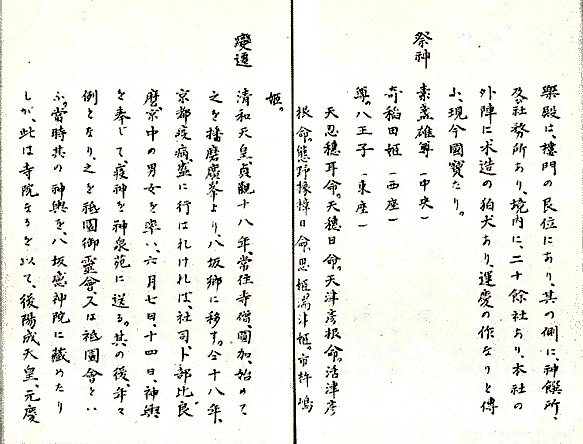 樂殿は、樓門の艮位にあり、其の側に、神饌所、
及社務所あり、境内に、二十餘社あり、本社の
外陣に木造の狛犬あり、運慶の作なりと傳
ふ、現今國寶たり。
祭神
素盞雄尊(中央)
奇稻田姬(西座)
尊。八王子(東座)
天忍穗耳命。天穗日命。天津彦根命。活津彦
根命。熊野櫲樟日命。思姬。湍津姬。市杵嶋
姬。
變遷
清和天皇貞觀十八年、常住寺僧、圓如、始めて
之を播磨廣峯より、八坂鄕に移す。今十八年、
京都疫病盛に行はれければ、社司、卜部比良
麿京中の男女を率い、六月七日、十四日、神輿
を奉じて、疫神を神泉苑に送る。其の後、年々
例となり、之を祗園御靈會、又は祗園會とい
ふ。當時其の神輿を、八坂感神院に藏めたり
しが、此は寺院なるを以て、後陽成天皇、元慶